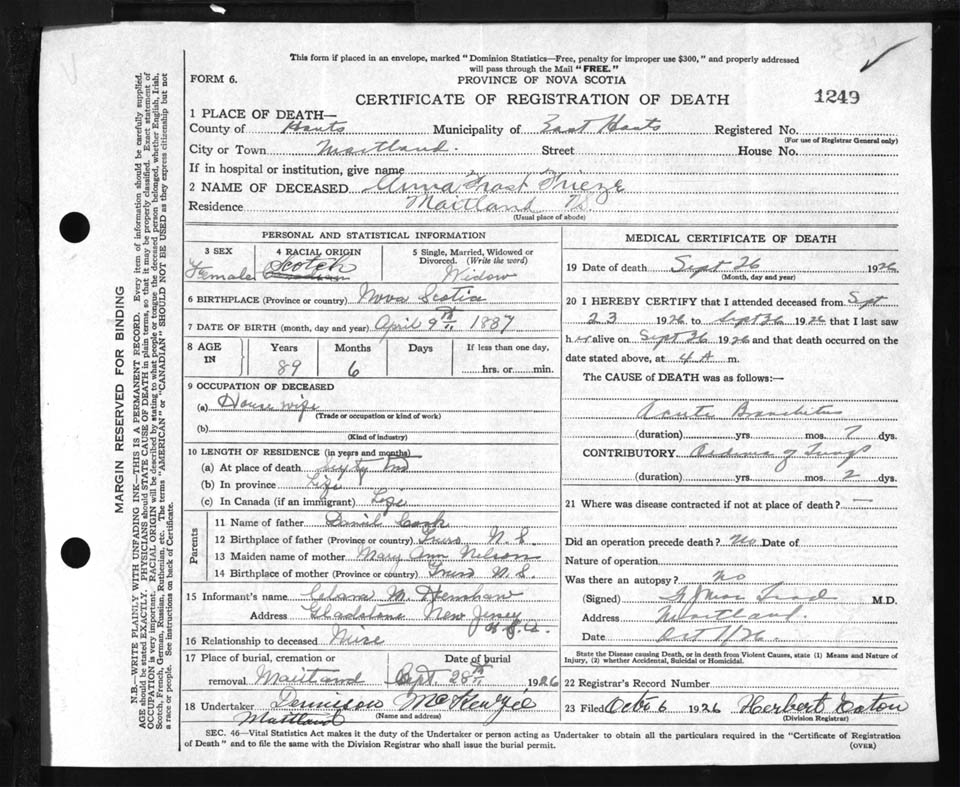 This form if placed in an envelope, marked "Dominion Statistics—Free, penalty for improper use $300," and properly addressed
will pass through the Mail "FREE."
FORM 6.
PROVINCE OF NOVA SCOTIA
CERTIFICATE OF REGISTRATION OF DEATH
1249
1 PLACE OF DEATH—
County of Hants Municipality of East Hants Registered No.
(For use of Registrar General only)
City or Town Maitland. Street House No.
If in hospital or institution, give name
2 NAME OF DECEASED Anna Frost Frieze
Residence Maitland NS.
(Usual place of abode)
PERSONAL AND STATISTICAL INFORMATION
3 SEX Female
4 RACIAL ORIGIN Scotch
5 Single, Married, Widowed or
Divorced. (Write the word)
Widow
6 BIRTHPLACE (Province or country) Nova Scotia
7 DATE OF BIRTH (month, day and year) April 9th 1837
8 AGE IN Years Months Days If less than one day,
89 6 hrs. or min.
9 OCCUPATION OF DECEASED
(a) House wife
(Trade or occupation or kind of work)
(b)
(Kind of industry)
10 LENGTH OF RESIDENCE (in years and months)
(a) At place of death sixty
(b) In province Life
(c) In Canada (if an immigrant) Life
Parents
11 Name of father Daniel Cook
12 Birthplace of father (Province or country) Truro N.S.
13 Maiden name of mother Mary Ann Nelson
14 Birthplace of mother (Province or country) Truro N.S.
15 Informant's name Clara M. Henshaw
Address Gladstone New Jersey
U.S.A.
16 Relationship to deceased
17 Place of burial, cremation or Date of burial
removal Maitland Sept. 28th 1926
18 Undertaker Dennison McKenzie
(Name and address)
Maitland
MEDICAL CERTIFICATE OF DEATH
19 Date of death Sept 26 1926
(Month, day and year)
20 I HEREBY CERTIFY that I attended deceased from Sept
23 1926 to Sept 26 1926 that I last saw
her alive on Sept 26 1926 and that death occurred on the
date stated above, at 4 A m.
The CAUSE of DEATH was as follows:—
Acute Bronchitis
(duration) yrs. mos. 7 dys.
CONTRIBUTORY Oedema of Lungs
(duration) yrs. mos. 2 dys.
21 Where was disease contracted if not at place of death? —
Did an operation precede death? No Date of
Nature of operation
Was there an autopsy? No
(Signed) M.D.
Address Maitland.
Date Oct 1/26.
State the Disease causing Death, or in death from Violent Causes, state (1) Means and Nature of
Injury, (2) whether Accidental, Suicidal or Homicidal.
22 Registrar's Record Number
23 Filed Octr 6 1926 Herbert Eaton
(Division Registrar)
SEC. 46—Vital Statistics Act makes it the duty of the Undertaker or person acting as Undertaker to obtain all the particulars required in the "Certificate of Registration
of Death" and to file the same with the Division Registrar who shall issue the burial permit.
(OVER)
MARGIN RESERVED FOR BINDING
N.B.—WRITE PLAINLY WITH UNFADING INK—THIS IS A PERMANENT RECORD. Every item of information should be carefully supplied.
AGE should be stated EXACTLY. PHYSICIANS should STATE CAUSE OF DEATH in plain terms, so that it may be properly classified. Exact statement of
OCCUPATION is very important. RACIAL ORIGIN will be described by stating to what people or tongue the deceased person belonged, whether English, Irish,
Scotch, French, German, Russian, Ruthenian, etc. The terms "AMERICAN" or "CANADIAN" SHOULD NOT BE USED as they express citizenship but not
a race or people. See instructions on back of Certificate.